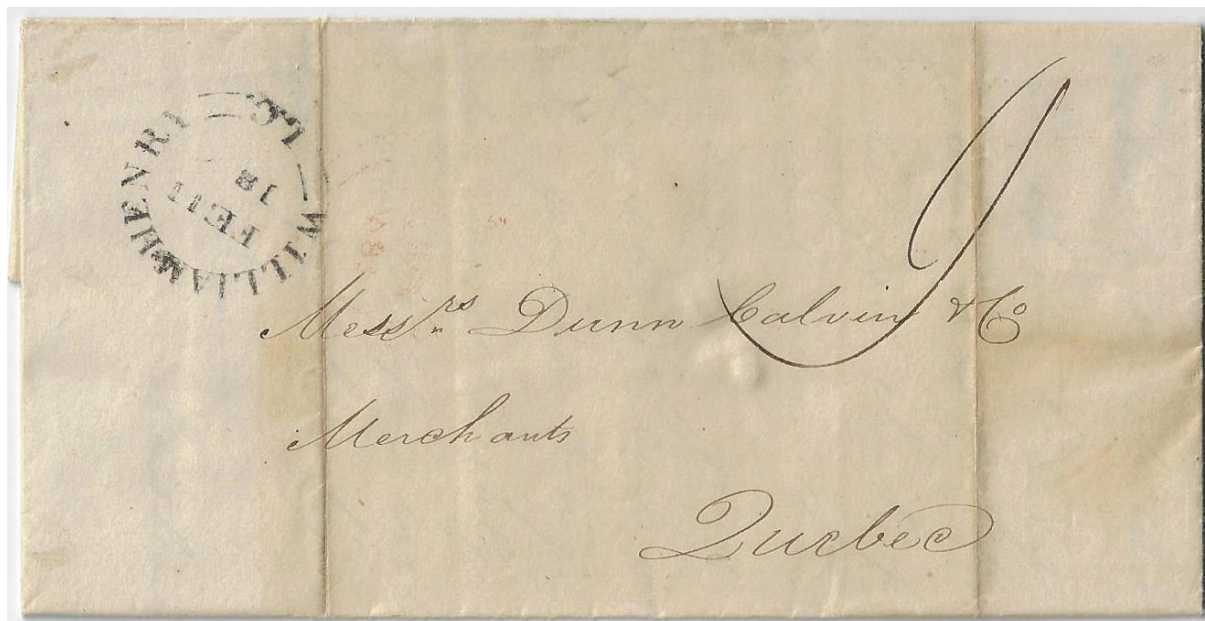 WILLIAM HENRY
L.C.
9
Mess.rs Dunn Calvin & Co
Merchants
Quebec